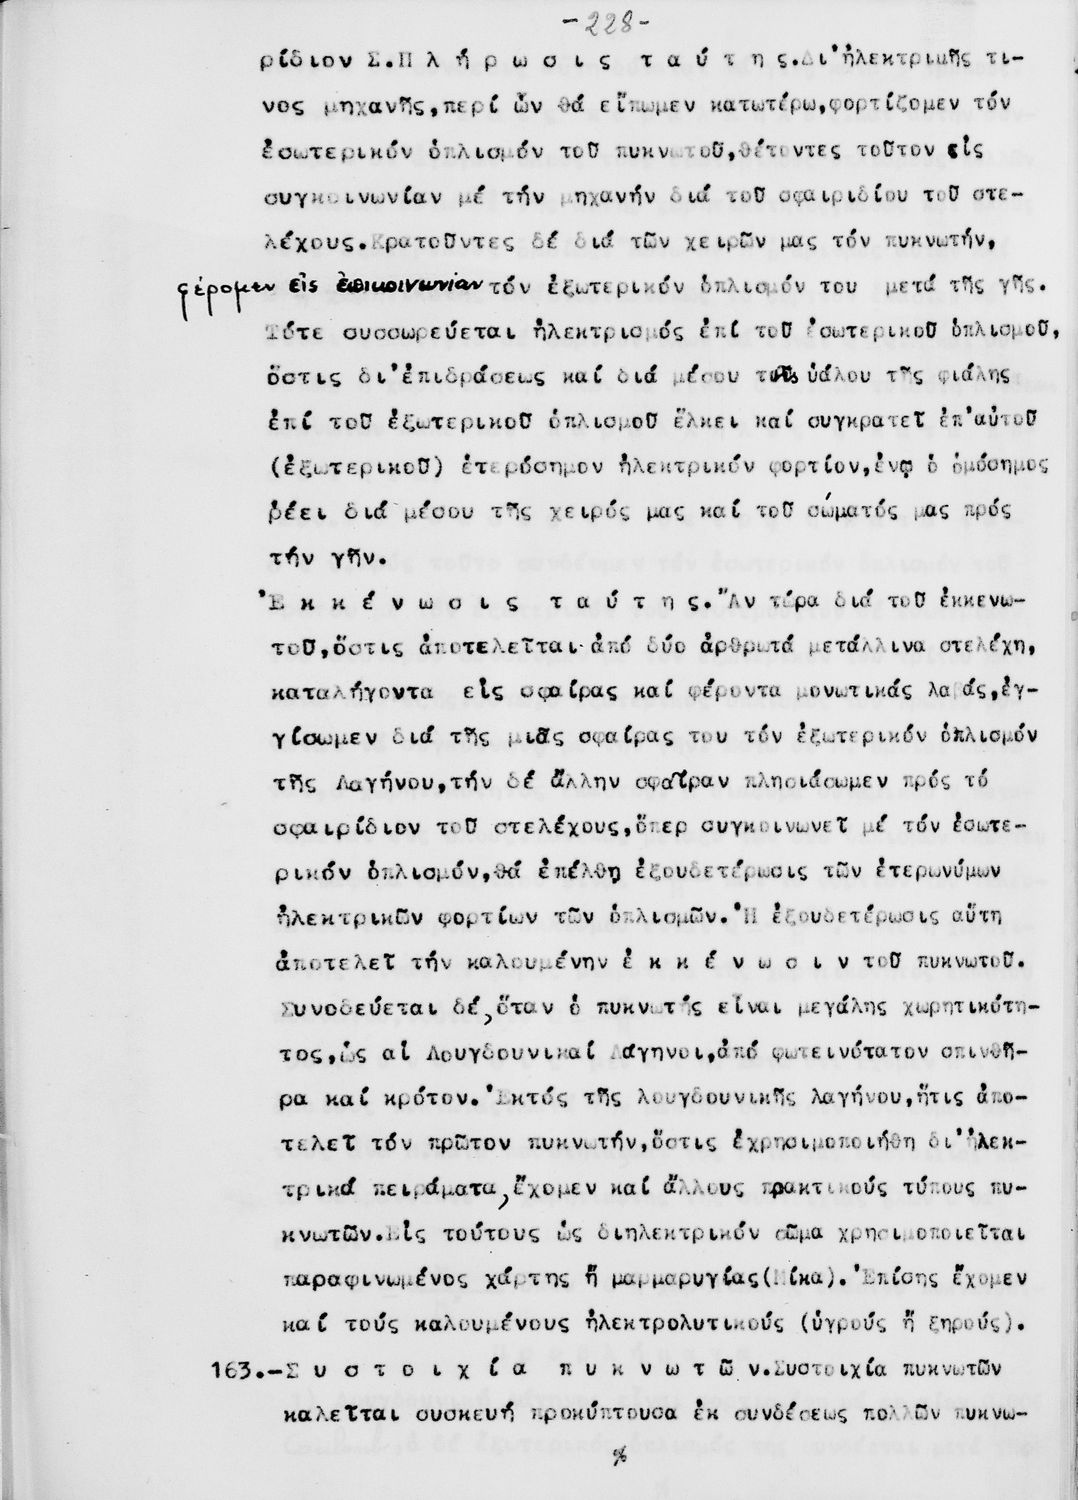 -228-
ρίδιον Σ.Π λ ή ρ ω σ ι ς  τ α ύ τ η ς.Δι'ἠλεκτρικῆς τι-
νος μηχανῆς,περί ὧν θά εἴπωμεν κατωτέρω,φορτίζομεν τόν
ἐσωτερικόν ὁπλισμόν τοῦ πυκνωτοῦ,θέτοντες τοῦτον εἰς
συγκοινωνίαν μέ τήν μηχανήν διά τοῦ σφαιριδίου τοῦ στε-
λέχους.Κρατοῦντες δέ διά τῶν χειρῶν μας τόν πυκνωτήν,
φέρομεν εἰς ἐπικοινωνίαν τόν ἐξωτερικόν ὁπλισμόν του μετά τῆς γῆς.
Τότε συσσωρεύεται ἠλεκτρισμός ἐπί τοῦ ἐσωτερικοῦ ὁπλισμοῦ,
ὅστις δι'ἐπιδράσεως καί διά μέσου τῆς ὑάλου τῆς φιάλης
ἐπί τοῦ ἐξωτερικοῦ ὁπλισμοῦ ἕλκει καί συγκρατεῖ ἐπ'αὐτοῦ
(ἐξωτερικοῦ) ἑτερόσημον ἠλεκτρικόν φορτίον,ἐνῷ ὁ ὁμόσημος
ῥέει διά μέσου τῆς χειρός μας καί τοῦ σώματός μας πρός
τήν γῆν.
Ἐ κ κ έ ν ω σ ι ς  τ α ύ τ η ς.Ἄν τώρα διά τοῦ ἐκκενω-
τοῦ,ὅστις ἀποτελεῖται ἀπό δύο ἀρθρωτά μετάλλινα στελέχη,
καταλήγοντα εἰς σφαίρας καί φέροντα μονωτικάς λαβάς,ἐγ-
γίσωμεν διά τῆς μιᾶς σφαίρας του τόν ἐξωτερικόν ὁπλισμόν
τῆς Λαγήνου,τήν δέ ἄλλην σφαῖραν πλησιάσωμεν πρός τό
σφαιρίδιον τοῦ στελέχους,ὅπερ συγκοινωνεῖ μέ τόν ἐσωτε-
ρικόν ὁπλισμόν,θά ἐπέλθῃ ἐξουδετέρωσις τῶν ἑτερωνύμων
ἠλεκτρικῶν φορτίων τῶν ὁπλισμῶν.Ἡ ἐξουδετέρωσις αὕτη
ἀποτελεῖ τήν καλουμένην ἐ κ κ έ ν ω σ ι ν τοῦ πυκνωτοῦ.
Συνοδεύεται δέ,ὅταν ὁ πυκνωτής εἶναι μεγάλης χωρητικότη-
τος,ὡς αἱ Λουγδουνικαί Λάγηνοι,ἀπό φωτεινότατον σπινθῆ-
ρα καί κρότον.Ἐκτός τῆς λουγδουνικῆς λαγήνου,ἥτις ἀπο-
τελεῖ τόν πρῶτον πυκνωτήν,ὅστις ἐχρησιμοποιήθη δι'ἠλεκ-
τρικά πειράματα,ἔχομεν καί ἄλλους πρακτικούς τύπους πυ-
κνωτῶν.Εἰς τούτους ὡς διηλεκτρικόν σῶμα χρησιμοποιεῖται
παραφινωμένος χάρτης ἤ μαρμαρυγίας(Μίκα).Ἐπίσης ἔχομεν
καί τούς καλουμένους ἠλεκτρολυτικούς (ὑγρούς ἤ ξηρούς).
163.-Σ υ σ τ ο ι χ ί α  π υ κ ν ω τ ῶ ν.Συστοιχία πυκνωτῶν
καλεῖται συσκευή προκύπτουσα ἐκ συνδέσεως πολλῶν πυκνω-
%